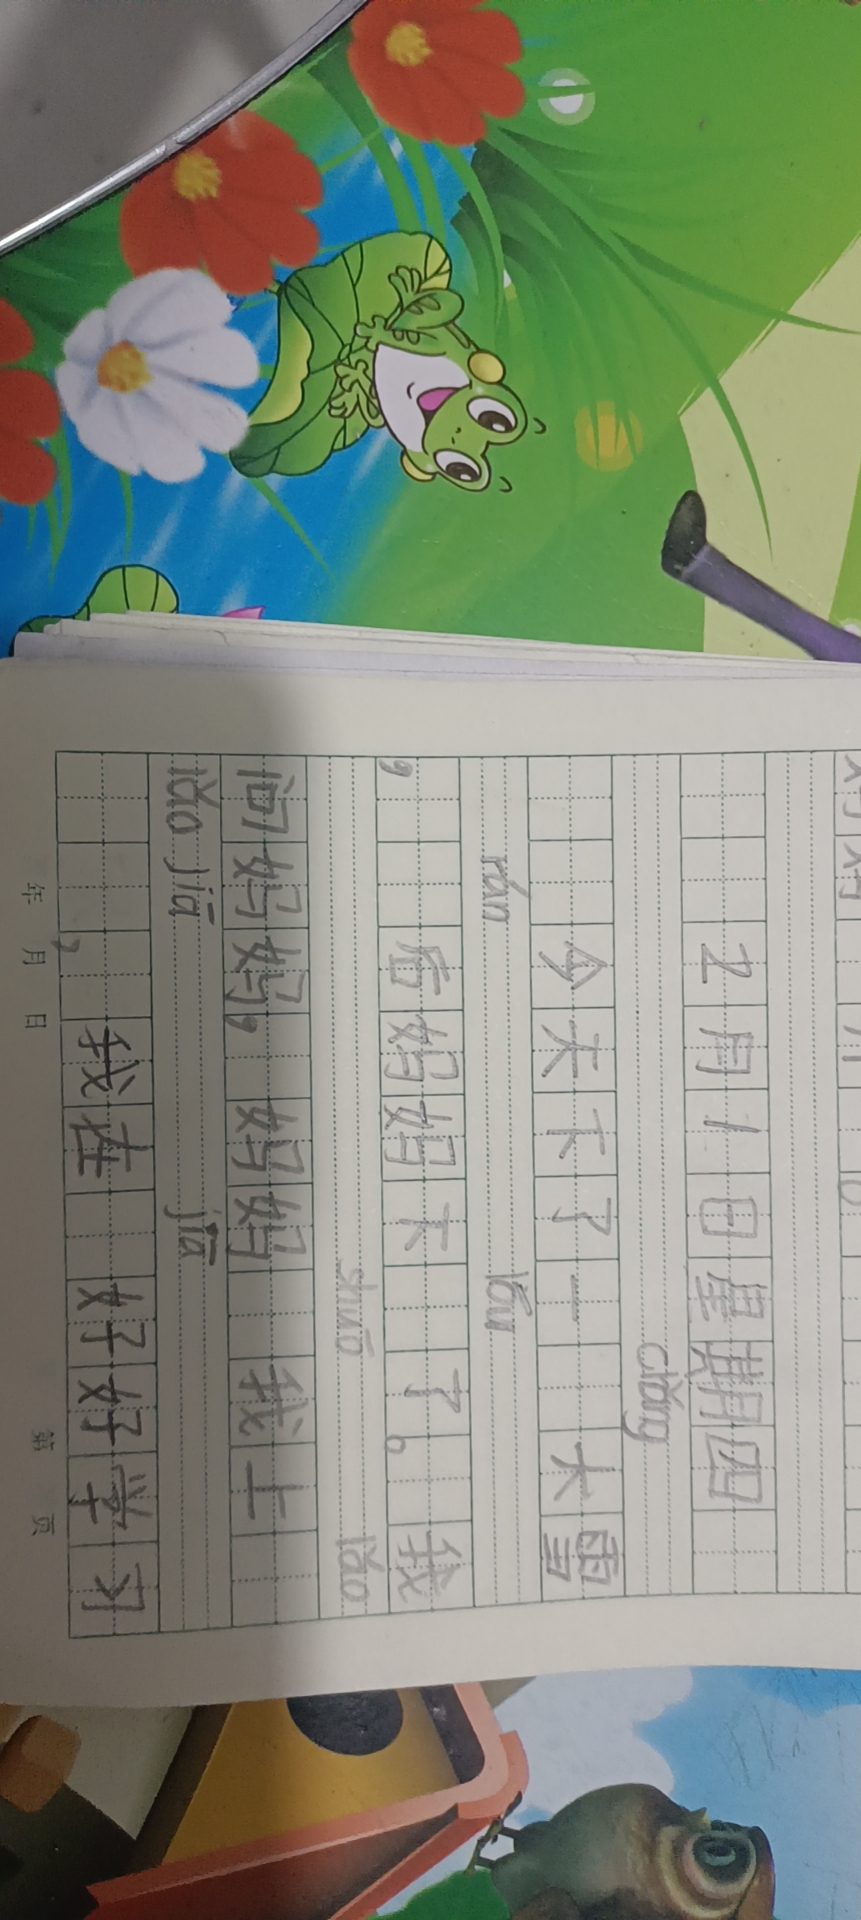 2月1日星期四
chǎng
今天下了一 大雪
rán lóu
, 后妈妈下 了。我
shuō lǎo
问妈妈, 妈妈 我上
lǎo jiā jiā
, 我在 好好学习
年 月 日 第 页